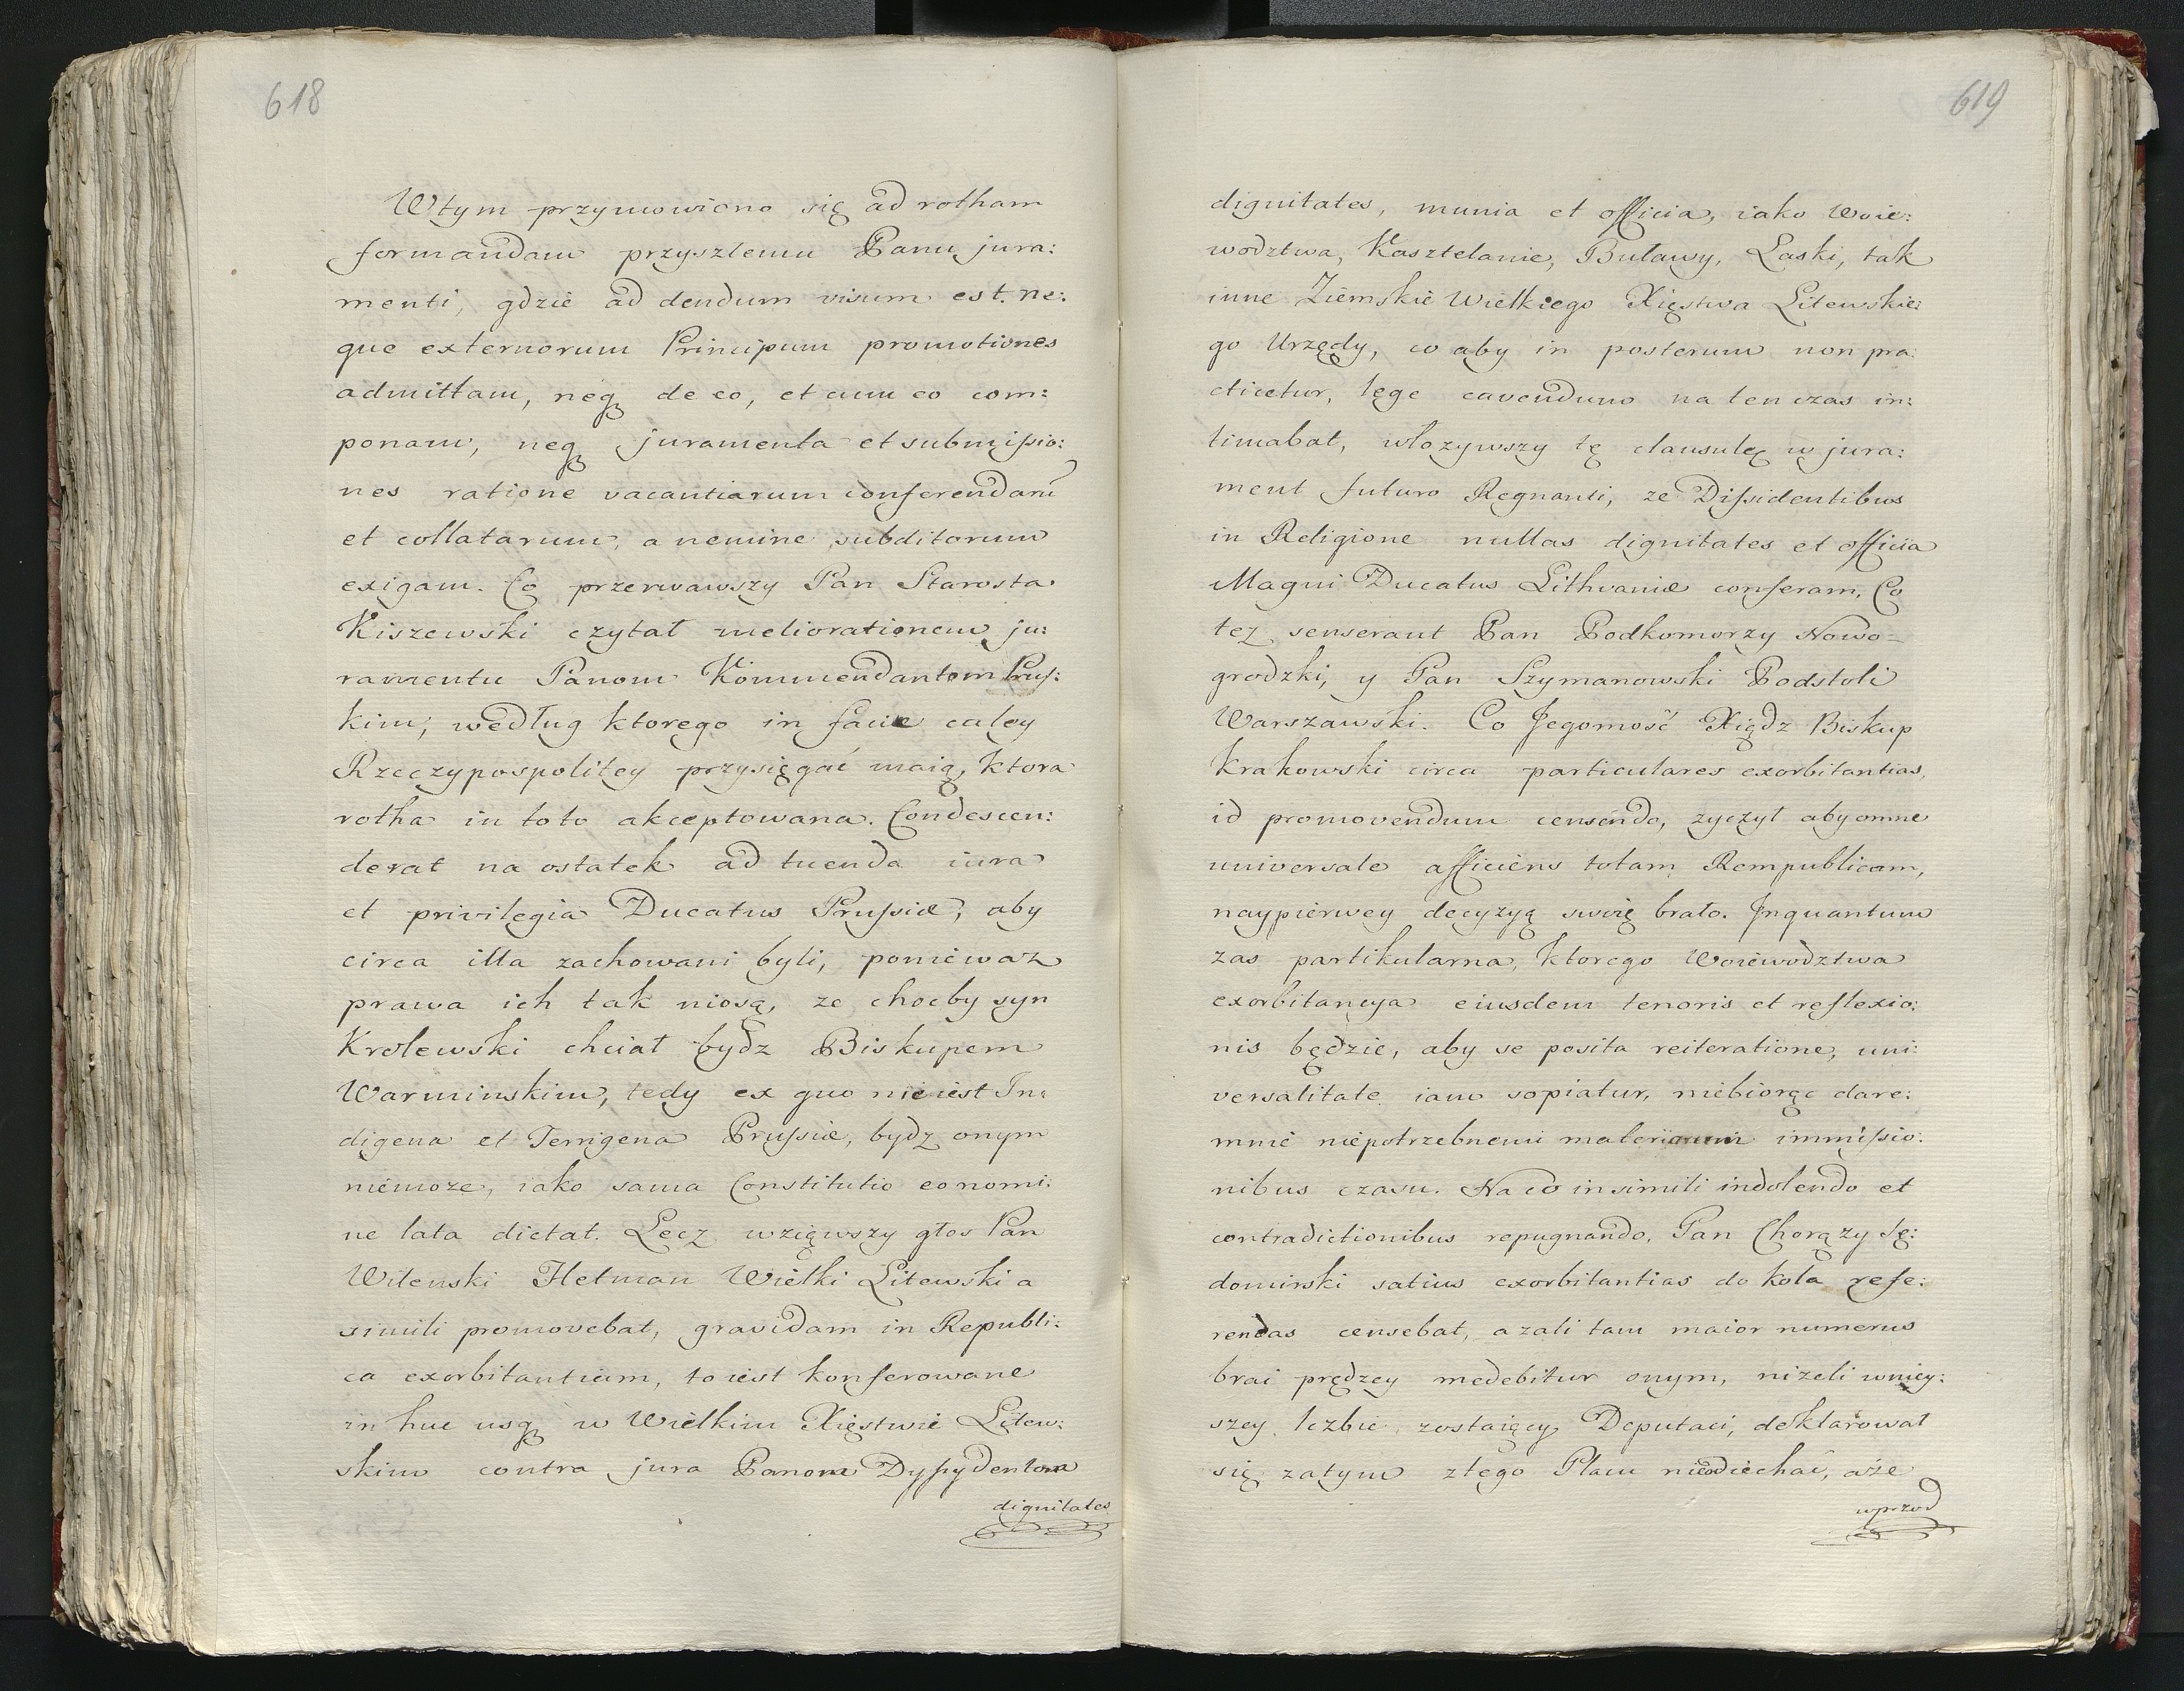 618
Wtym przymowiono się ad rotham
formandam przyszlemu Panu jura:
menti, gdzie ad dendum visum est. ne:
que externorum Principum promotiones
admittam, neq de eo, et cum eo com:
ponam, neq juramenta et submissio:
nes ratione vacantiarum conferendarū
et collatarum, a nemine subditorum
exigam. Co przerwawszy Pan Starosta
Kiszewski czytał meliorationem ju:
ramentu Panom Kommendantom Prus:
kim, według ktorego in facie całey
Rzeczypospolitey przysięgać maią, ktora
rotha in toto akceptowana. Condescen:
derat na ostatek ad tuenda iura
et privilegia Ducatus Prussiæ, aby
circa illa zachowani byli, poniewaz
prawa ich tak niosą, ze choćby syn
Krolewski chciał bydz Biskupem
Warminskim, tedy ex quo nieiest In:
digena et Terrigena Prussiæ, bydz onym
niemoze, iako sama Constitutio eo nomi:
ne lata dictat. Lecz wziąwszy głos Pan
Wilenski Hetman Wielki Litewski a
simili promovebat, gravidam in Republi:
ca exorbitantiam, to iest konferowane
in huc usq w Wielkim Xięstwie Litew:
skim contra jura Panom Dyssydentom
dignitates
619
dignitates, munia et officia, iako Woie:
wodztwa, Kasztelanie, Buławy, Laski, tak
inne Ziemskie Wielkiego Xięstwa Litewskie:
go Urzędy, co aby in posterum non pra:
cticetur, lege cavenduno na ten czas in:
timabat, włozywszy tę clausulę w jura:
ment futuro Regnanti, ze Dissidentibus
in Religione nullas dignitates et officia
Magni Ducatus Lithvaniæ conferam, Co
tez senserant Pan Podkomorzy Nowo-
grodzki, y Pan Szymanowski Podstoli
Warszawski. Co Jegomość Xiądz Biskup
Krakowski circa particulares exorbitantias,
id promovendum censendo, zyczył aby omne
universale afficiens totam Rempublicam,
naypierwey decyzyą swoię brało. Inquantum
zas partikularna, ktorego Woiewodztwa
exorbitancya eiusdem tenoris et reflexio:
nis będzie, aby se posita reiteratione, uni:
versalitate iam sopiatur, niebiorąc dare:
mnie niepotrzebnemi immissio:
nibus czasu. Na co in simili indolendo et
contradictionibus repugnando, Pan Chorązy Sę:
domirski satius exorbitantias do koła refe:
rendas censebat, azali tam maior numerus
brai prędzey medebitur onym, niżeli wniey:
szey liczbie zostaiący Deputaci, deklarował
się zatym z tego Placu nieodiechać, aże
wprzod